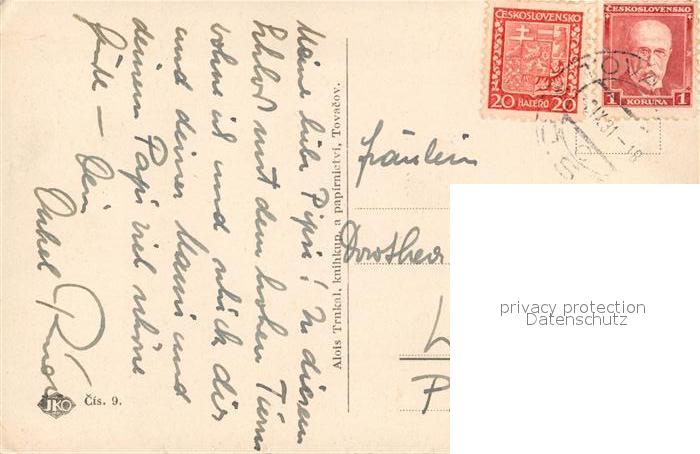 Meine liebe Pipsi! In diesem
Schloß mit dem hohen Turm
wohne ich und schick dir
und deiner Mami und
deinem Papi viel schöne
Grüße – Dein
Onkel
Alois Trnkal, knihkup. a papírnictví, Tovačov.
JKO
Čís. 9.
ČESKOSLOVENSKO
20 HALÉŘŮ 20
ČESKOSLOVENSKO
1 KORUNA 1
Fräulein
Dorothea
L
P
privacy protection
Datenschutz